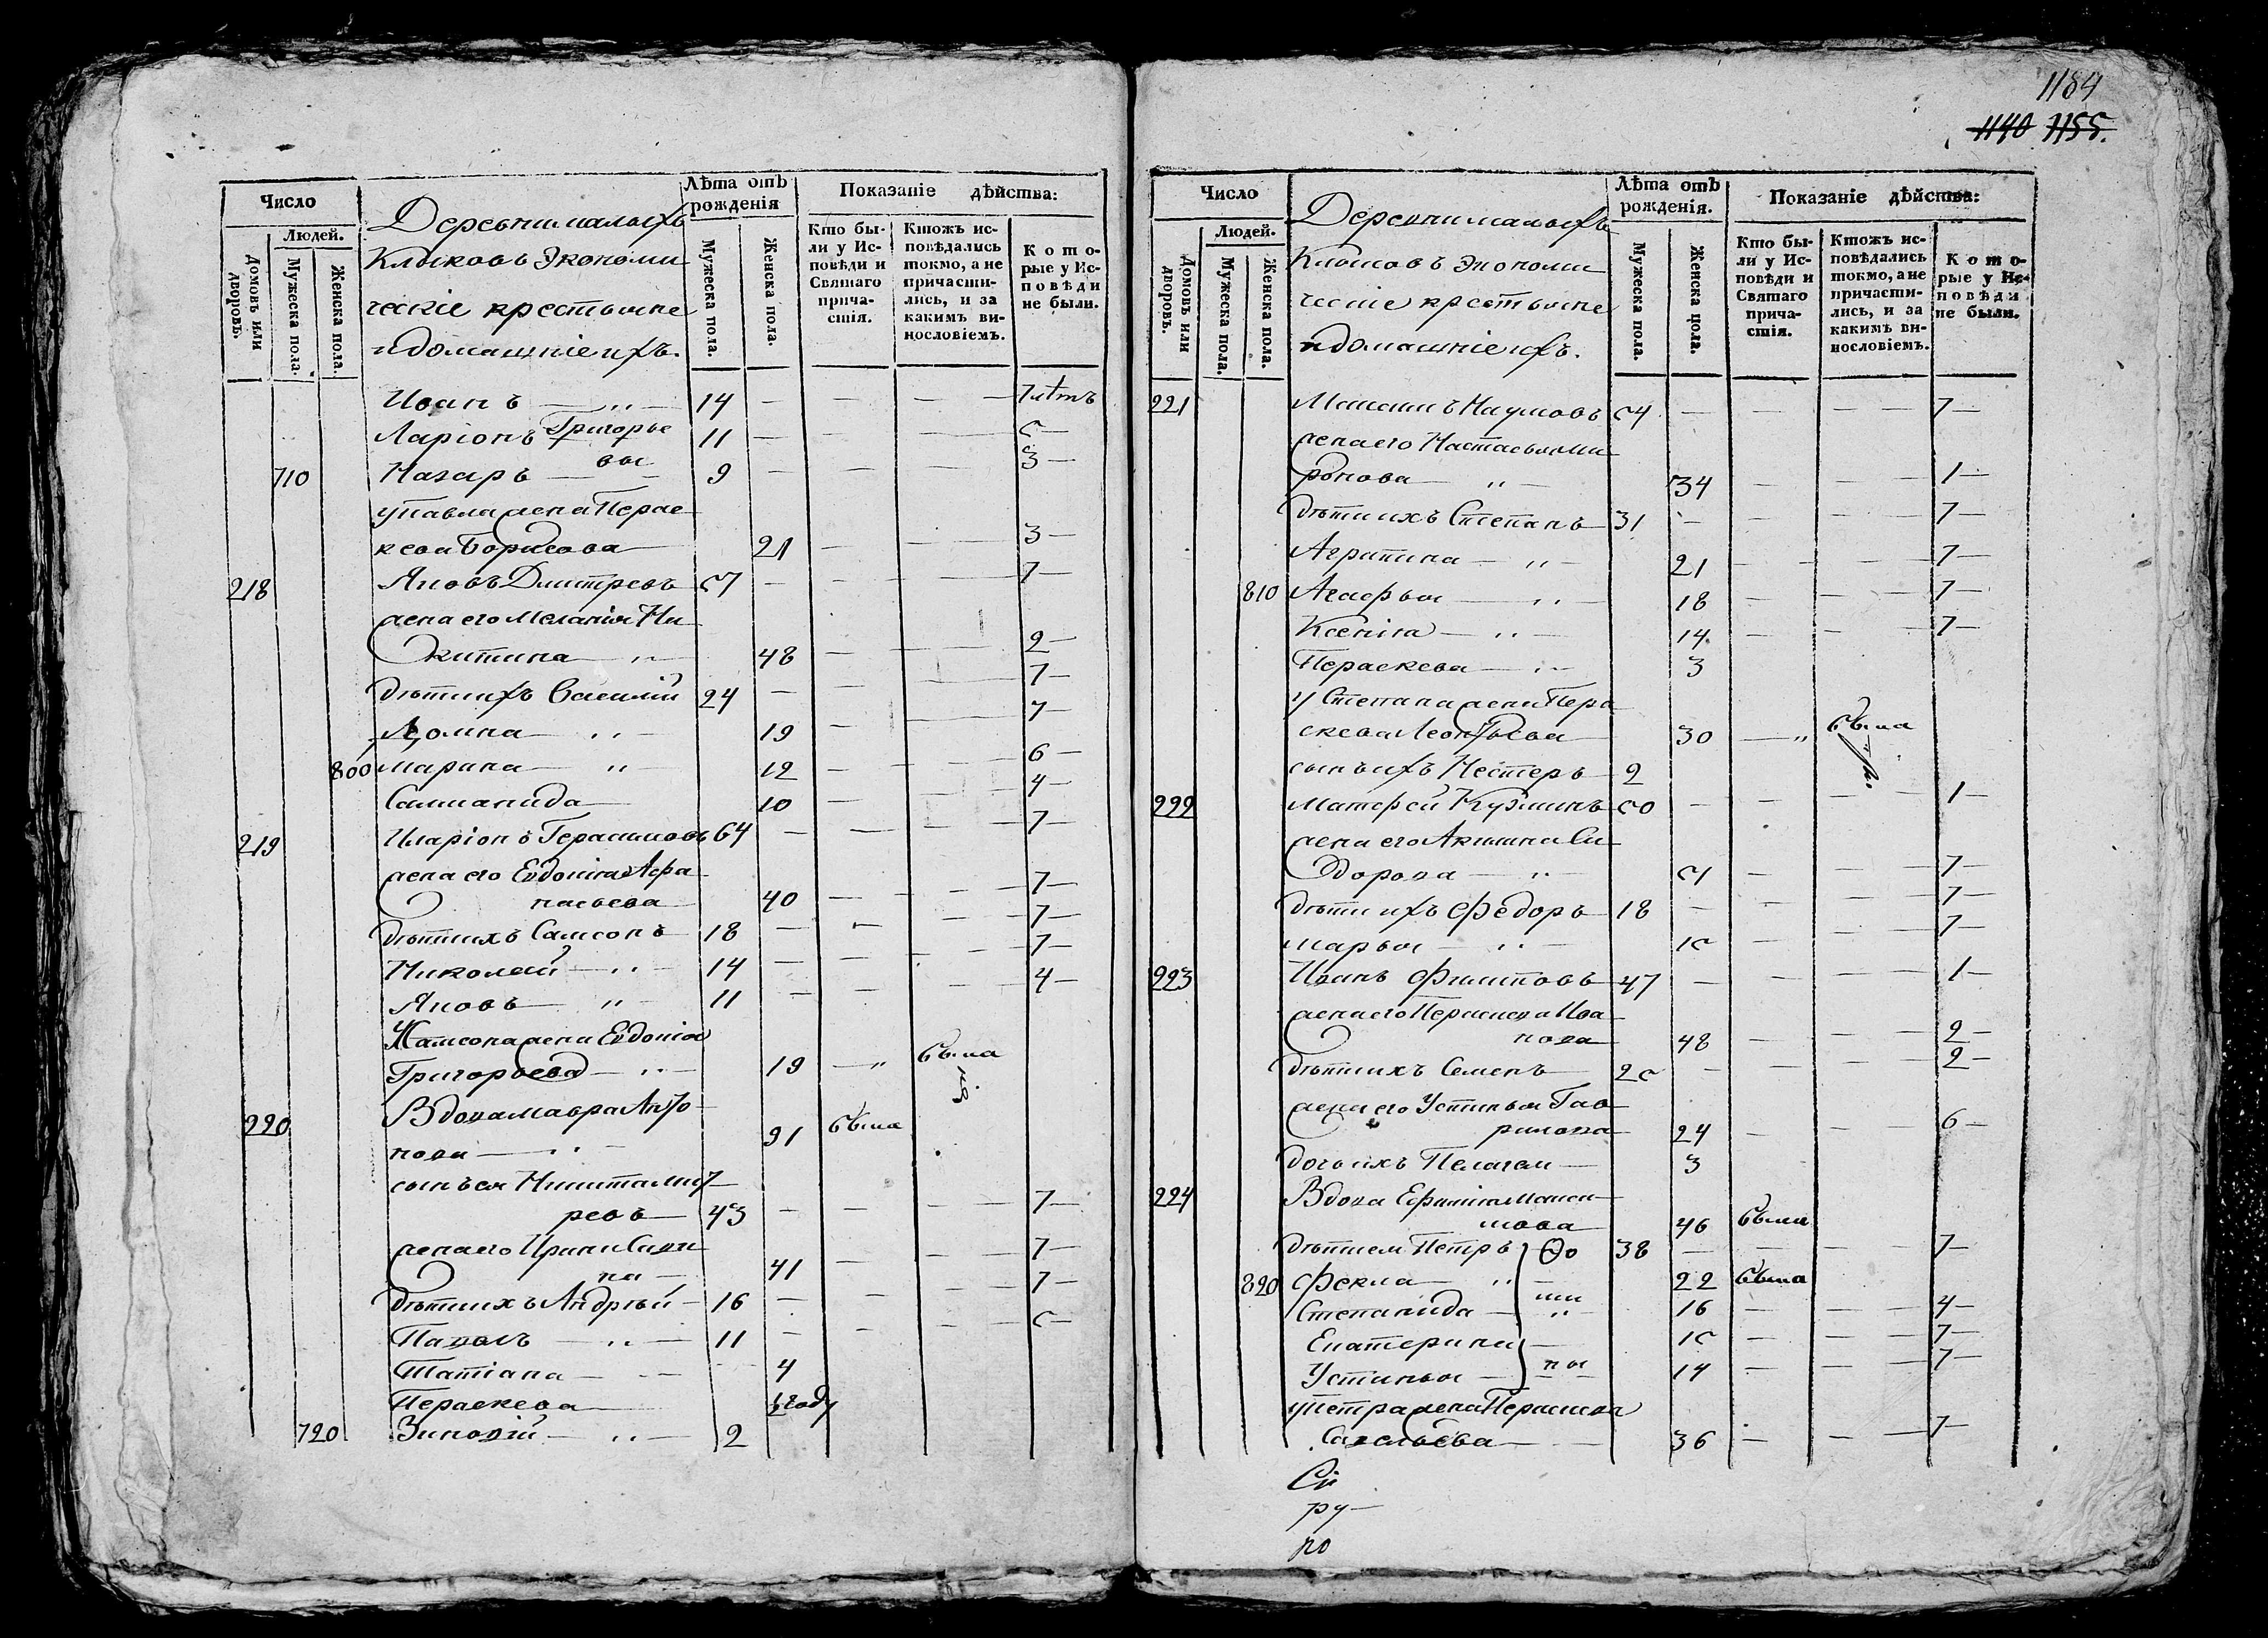 1184
1140 1155.
Число
Лѣта отъ рожденія
Показаніе дѣйства:
Людей.
Домовъ или дворовъ.
Мужеска пола.
Женска пола.
Деревни малыхъ
Клыковъ Экономи
ческіе крестьяне
и домашніе ихъ.
Мужеска пола.
Женска пола.
Кто были у Исповѣди и Святаго причастія.
Ктожъ исповѣдались токмо, а не причастились, и за какимъ винословіемъ.
Которые у Исповѣди не были.
Иванъ — „ — 14 — — — 7 лѣтъ
Ларіонъ Григорье 11 — — 5 —
710 Назаръ — вы — 9 — — — 3 —
у Павла жена Парас
кева Борисова 21 — — — 3 —
218 Яковъ Дмитревъ 57 — — — 7 —
жена его Меланія Ни
китина — „ — 48 — — — 2 —
дѣти ихъ Василій 24 — — — 7 —
Домна — „ — 19 — — 7 —
800 Марина — „ — 12 — — — 6 —
Саламанида 10 — — — 4 —
219 Иларіонъ Герасимовъ 64 — — — 7 —
жена его Евдокіа Афа
насьева 40 — — — 7 —
дѣти ихъ Самсонъ 18 — — — 7 —
Николай — „ — 14 — — — 7 —
Яковъ — „ — 11 — — — 4 —
У Самсона жена Евдокіа
Григорьева — „ — 19 — „ была
220 Вдова Мавра Анто
нова — „ — 91 была
сынъ ея Никита Дмит
ревъ 43 — — — 7 —
жена его Ирина Сави
на — 41 — — — 7 —
дѣти ихъ Андрѣй — 16 — — — 7 —
Павелъ — „ — 11 — — — 5 —
Татіана — „ — 4
Параскева ½ году
720 Зиновій — „ — 2
Число
Лѣта отъ рожденія.
Показаніе дѣйства:
Людей.
Домовъ или дворовъ.
Мужеска пола.
Женска пола.
Деревни малыхъ
Клыковъ Экономи
ческіе крестьяне
и домашніе ихъ.
Мужеска пола.
Женска пола.
Кто были у Исповѣди и Святаго причастія.
Ктожъ исповѣдались токмо, а не причастились, и за какимъ винословіемъ.
Которые у Исповѣди не были.
221 Максимъ Наумовъ 54 — — — 7 —
жена его Настасья Ми
ронова — „ — 34 — — — 1 —
дѣти ихъ Степанъ 31 — — — 7 —
Агрипина — „ — 21 — — — 7 —
810 Агафья — „ — 18 — — — 7 —
Ксеніа — „ — 14 — — — 7 —
Параскева — „ — 3
у Степана жена Пара
скева Леонтьева 30 — „ была
сынъ ихъ Нестеръ 2
222 Матфей Кузминъ 50 — — — 1 —
жена его Акилина Си
дорова — „ — 51 — — — 7 —
дѣти ихъ Федоръ 18 — — — 7 —
Марья — „ — 15 — — — 7 —
223 Иванъ Филиповъ 47 — — — 1 —
жена его Параскева Ива
нова 48 — — — 2 —
дѣти ихъ Семенъ 25 — — — 2 —
жена его Устинья Гав
рилова 24 — — — 6 —
дочь ихъ Пелагея 3
224 Вдова Ефиміа Макси
мова 46 была
дѣти ея Петръ Фо 38 — — — 7 —
820 Фекла — „ — 22 была
Степанида — ми „ 16 — — — 4 —
Екатерина — 15 — — — 7 —
Устинья — ны — 14 — — — 7 —
у Петра жена Параскева
Савельева 36 — — — 7 —
Сі
ру —
ко